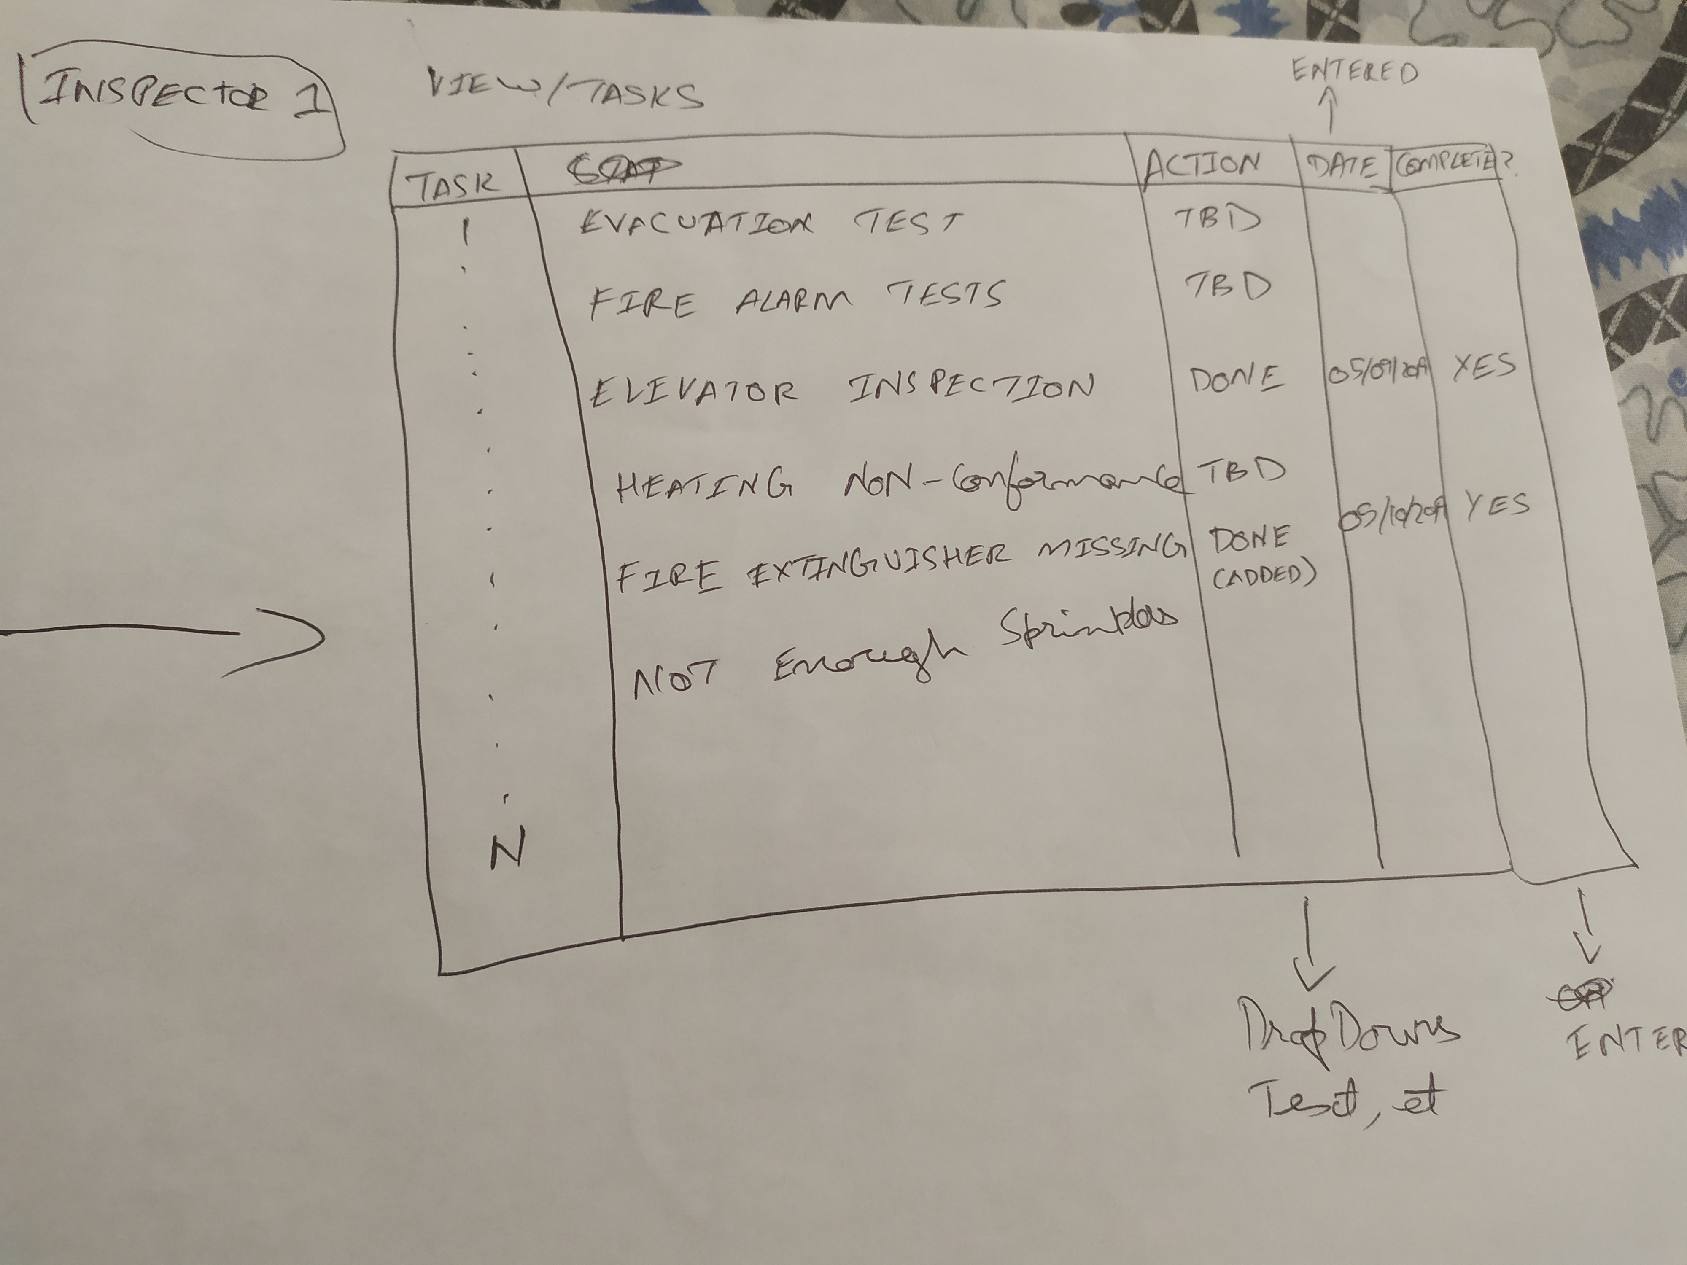 INSPECTOR 1
VIEW/TASKS
ENTERED
TASK ACTION DATE COMPLETE?
1 EVACUATION TEST TBD
FIRE ALARM TESTS TBD
ELEVATOR INSPECTION DONE YES
HEATING NON-Conformance TBD
FIRE EXTINGUISHER MISSING DONE YES
(ADDED)
NOT Enough Sprinklers
N
DropDowns
Text, et
ENTER